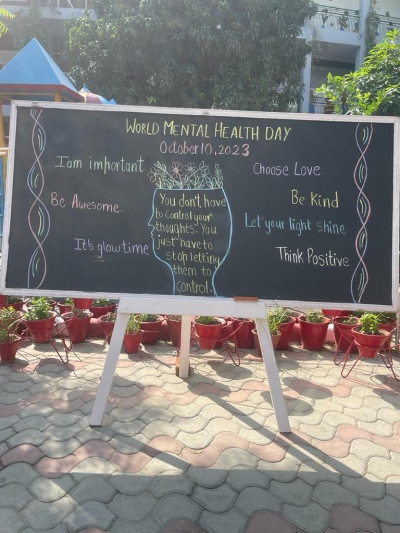 WORLD MENTAL HEALTH DAY
October 10, 2023
I am important
Be Awesome.
It's glow time
You don't have
to control your
thoughts. You
just have to
stop letting
them to
control.
Choose Love.
Be Kind
Let your light shine
Think Positive